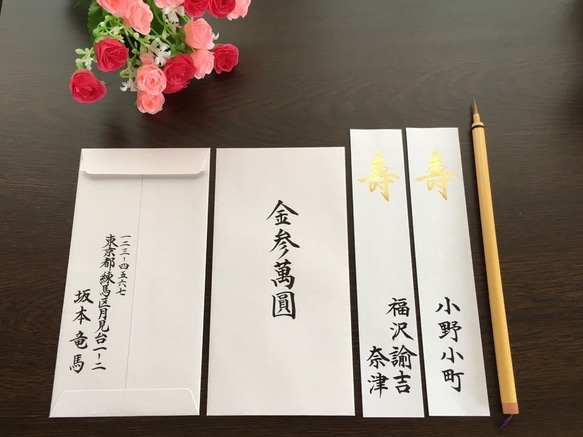 一二三-四五六七
東京都練馬区月見台一-二
坂本竜馬
金参萬圓
寿
福沢諭吉
奈津
寿
小野小町